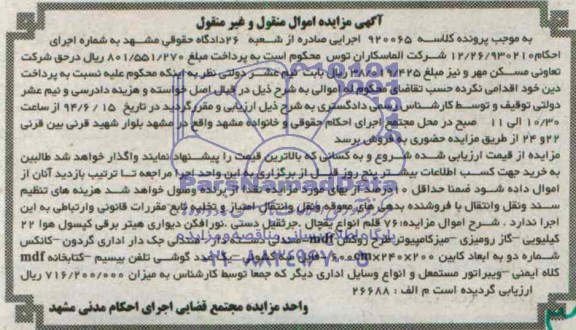 آگهی مزایده اموال منقول و غیر منقول
به موجب پرونده کلاسه ۹۲۰۰۶۵ اجرایی صادره از شعبه ۲۶دادگاه حقوقی مشهد به شماره اجرای
احکام۱۲/۲۶/۹۳۰۲۱۰ شرکت الماسکاران توس محکوم است به پرداخت مبلغ ۸۰۱/۵۵۱/۲۷۰ ریال درحق شرکت
تعاونی مسکن مهر و نیز مبلغ ۳۸/۰۱۹/۴۲۵ ریال بابت نیم عشر دولتی نظر به اینکه محکوم علیه نسبت به پرداخت
دین خود اقدامی نکرده حسب تقاضای محکوم له اموالی به شرح ذیل در قبال اصل خواسته و هزینه دادرسی و نیم عشر
دولتی توقیف و توسط کارشناس رسمی دادگستری به شرح ذیل ارزیابی و مقرر گردید در تاریخ ۹۴/۶/۱۵ از ساعت
۱۰/۳۰ الی ۱۱ صبح در محل مجتمع اجرای احکام حقوقی و خانواده مشهد واقع در مشهد بلوار شهید قرنی بین قرنی
۲۲و ۲۴ از طریق مزایده حضوری به فروش برسد
مزایده از قیمت ارزیابی شده شروع و به کسانی که بالاترین قیمت را پیشنهاد نمایند واگذار خواهد شد طالبین
به خرید جهت کسب اطلاعات بیشتر پنج روز قبل از برگزاری به این واحد اجرا مراجعه تا ترتیب بازدید آنان از
اموال داده شود ضمنا حداقل ۱۰ درصد وصول خواهد شد هزینه های تنظیم
سند ونقل وانتقال با فروشنده بدهی های معوقه ونقل وانتقال امتیاز و تخلیه تابع مقررات قانونی وارتباطی به این
اجرا ندارد . شرح اموال مزایده:۷۶ قلم انواع یخچال -جرثقیل دستی -نورافکن دیواری هیتر برقی کپسول هوا ۲۲
کیلیویی -گاز رومیزی -میزکامپیوتر طرح روکش mdf- صندلی دسته دار - صندلی جک دار اداری گردون -کانکس
شماره دو به ابعاد کابین ۲۰۰×۲۴۰ گوشی تلفن بیسیم -کتابخانه mdf
کلاه ایمنی -ویبراتور مستعمل و انواع وسایل اداری دیگر که جمعا توسط کارشناس به میزان ۷۱۶/۲۰۰/۰۰۰ ریال
ارزیابی گردیده است م الف : ۲۶۶۸۸
واحد مزایده مجتمع قضایی اجرای احکام مدنی مشهد